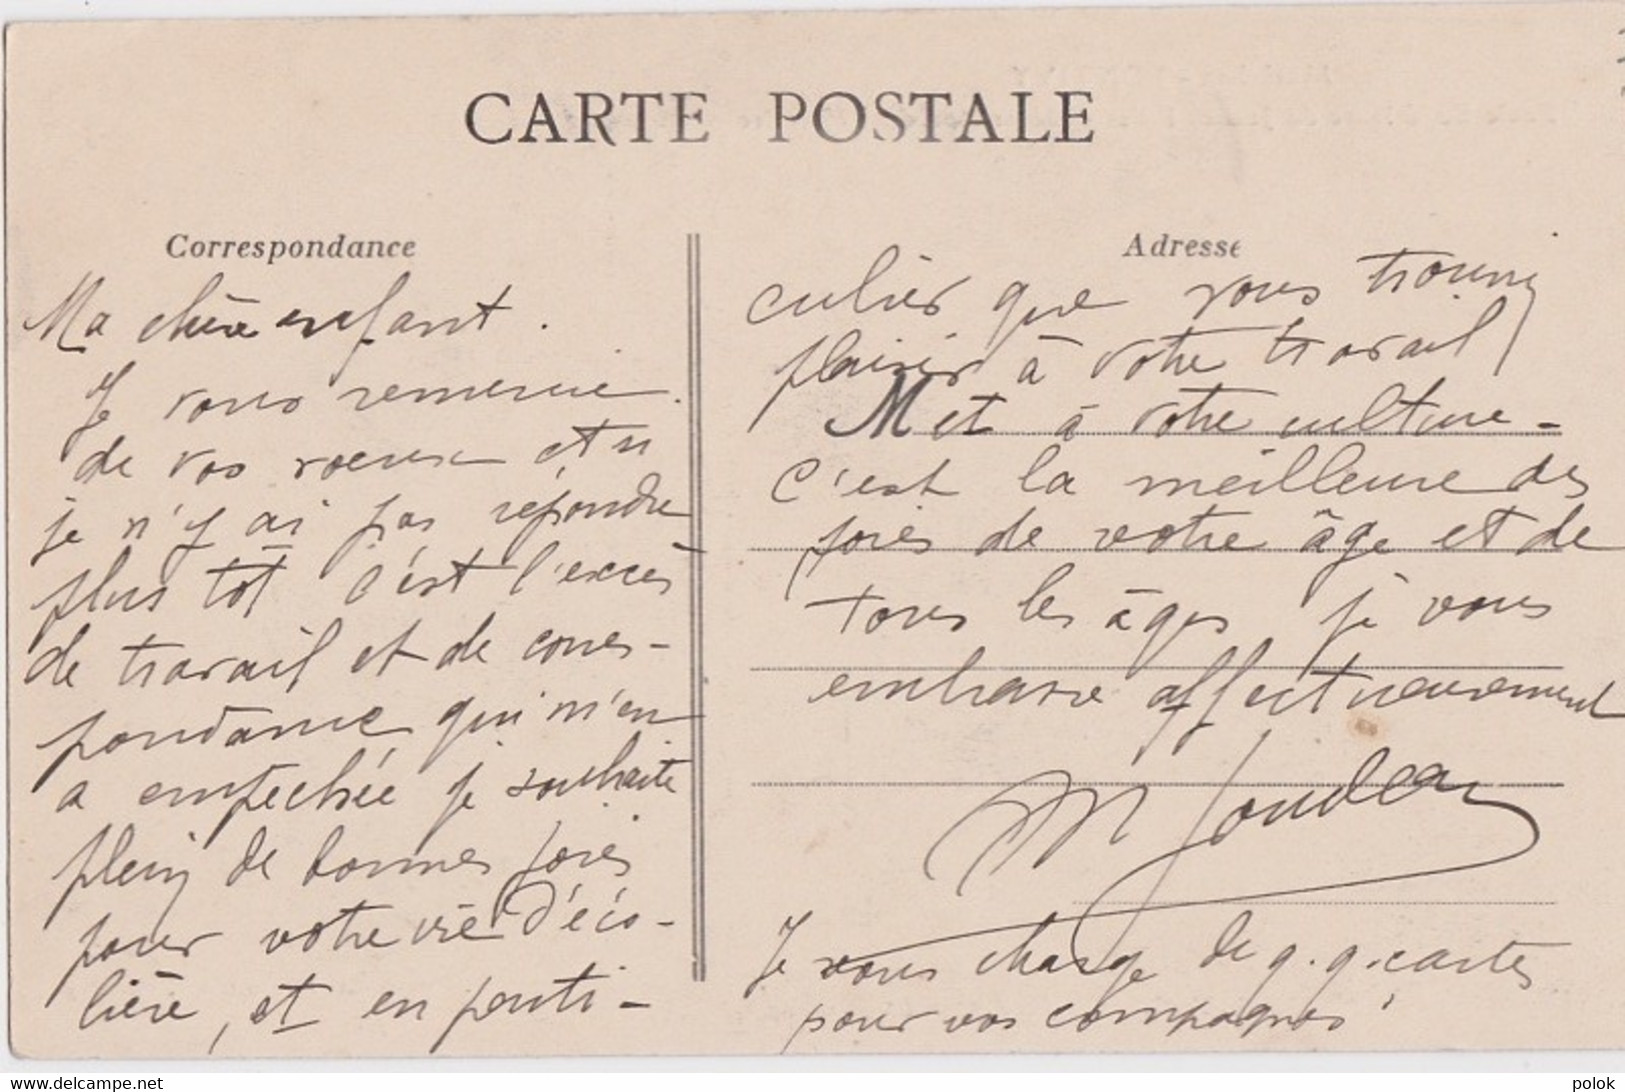 CARTE POSTALE
Correspondance
Ma chère enfant.
Je vous remercie
de vos voeux et si
je n'y ai pas répondu
plus tôt c'est l'excès
de travail et de corres-
pondance qui m'en
a empechée je souhaite
plein de bonnes joies
pour votre vie d'éco-
lière, et en parti-
Adresse
culier que vous trouviez
plaisir à votre travail
et à votre culture-
c'est la meilleure des
joies de votre âge et de
tous les âges je vous
embrasse affectueusement
M
Je vous charge de q.q. cartes
pour vos compagnes
www.delcampe.net
polok